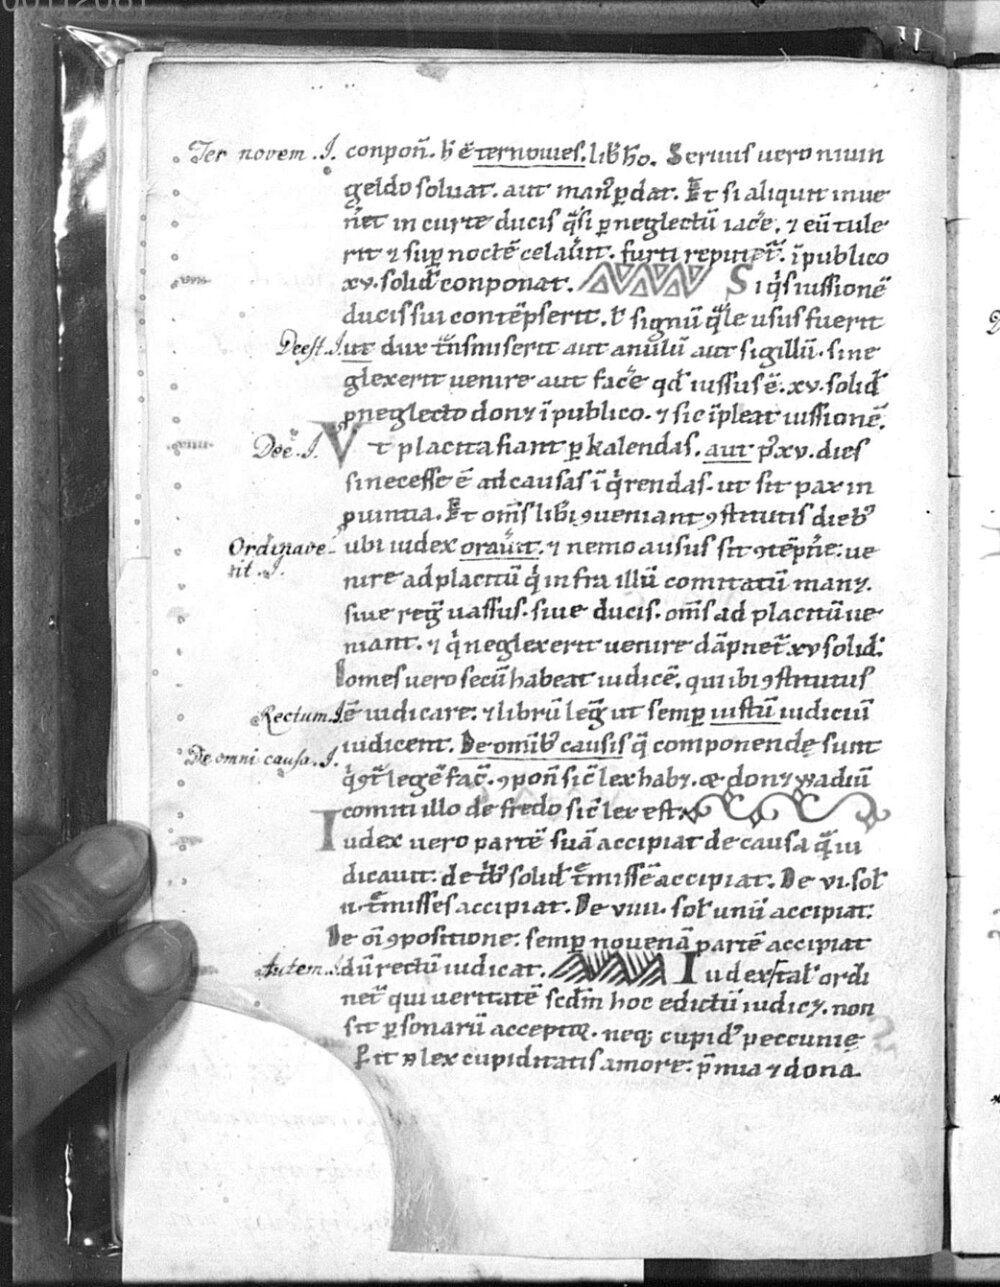 00112081
Ter novem .I. conpoñ. h̄ ē ternouies. lib̄ ho. Seruus uero niuin
geldo soluat. aut man᷒ ꝑdat. Et si aliquit inue
n̄et in curte ducis q̄si ꝑ neglectū iac̄e. ⁊ eū tule
rit ⁊ suꝑ noctē celau̅it. furti ī publico
xv. solid̄ conponat. Si q̄s iussionē
ducis sui contēpserit. ł signū q̄le usus fuerit
Deest .I. ut dux t̄nsmiserit aut anulū aut sigillū. sine
glexerit uenire aut fac̄e qd̄ iussus ē. xv. solid̄
ꝑ neglecto donꝫ ī publico. ⁊ sic īpleat iussionē.
Deē .I. Vt placita fiant ꝑ kalendas. aut p᷒ xv. dies
si necesse ē ad causas īq̄rendas. ut sit pax in
puintia. Et om̄s libi ꝯueniant ꝯstitutis dieb᷒
Ordinave- ubi iudex orau̅it. ⁊ nemo ausus sit ꝯtēpn̄e: ue
rit .I. nire ad placitū q̄ infra illū comitatū manꝫ.
siue reḡ uassus. siue ducis. om̄s ad placitū ue
niant. ⁊ q̄ neglexerit uenire dāpnet̄. xv solid̄:
Comes uero secū habeat iudicē. qui ibi ꝯstitutus
Rectum .I. ē iudicare: ⁊ librū leḡ ut semꝑ iustū iudiciū
De omni causa .I. iudicent. De omib᷒ causis q̄ componendę sunt
legē fac̄. ꝯpoñ sic̄ lex habꝫ. & donꝫ wadiū
comiti illo de fredo sic̄ lex est.
Iudex uero partē suā accipiat de causa q̄ iu
dicauit: de t̄b᷒ solid̄ t̄missē accipiat. De vi. sol̄
ii. t̄misses accipiat. De viiii. sol̄ unū accipiat:
De oī ꝯpositione: semꝑ nouenā partē accipiat
Autem .I. dū rectū iudicat. Iudex tal̄ ordi
net̄ qui ueritatē scdm̄ hoc edictū iudicꝫ. non
sit ꝑsonarū acceptor. neqꝫ cupid᷒ peccunię
lex cupiditatis amore: p̄mia ⁊ dona